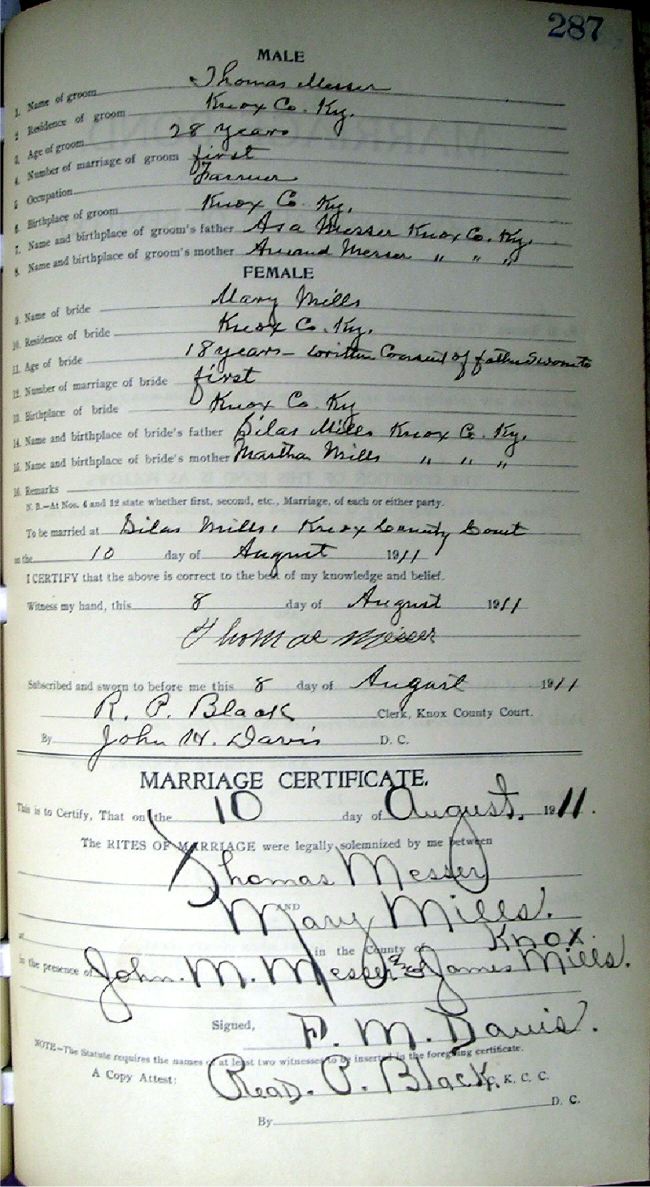 287
MALE
1. Name of groom Thomas Messer
2. Residence of groom Knox Co. Ky.
3. Age of groom 28 years
4. Number of marriage of groom first
5. Occupation Farmer
6. Birthplace of groom Knox Co. Ky.
7. Name and birthplace of groom's father Asa Messer Knox Co. Ky.
8. Name and birthplace of groom's mother Amand Messer " " "
FEMALE
9. Name of bride Mary Mills
10. Residence of bride Knox Co. Ky.
11. Age of bride 18 years - written Consent of father Sworn to
12. Number of marriage of bride first
13. Birthplace of bride Knox Co. Ky
14. Name and birthplace of bride's father Silas Mills Knox Co. Ky.
15. Name and birthplace of bride's mother Martha Mills " " "
16. Remarks
N. B.—At Nos. 4 and 12 state whether first, second, etc., Marriage, of each or either party.
To be married at Silas Mills, Knox County Court
on the 10 day of August 1911
I CERTIFY that the above is correct to the best of my knowledge and belief.
Witness my hand, this 8 day of August 1911
Thomas Messer
Subscribed and sworn to before me this 8 day of August 1911
R. P. Black Clerk, Knox County Court.
By John H. Davis D. C.
MARRIAGE CERTIFICATE.
This is to Certify, That on the 10 day of August. 1911.
The RITES OF MARRIAGE were legally solemnized by me between
Thomas Messer
AND
Mary Mills.
at in the County of Knox.
in the presence of John. M. Messer and James Mills.
Signed, F. M. Davis.
NOTE—The Statute requires the names of at least two witnesses to be inserted in the foregoing certificate.
A Copy Attest: Read. P. Black, K. C. C.
By D. C.